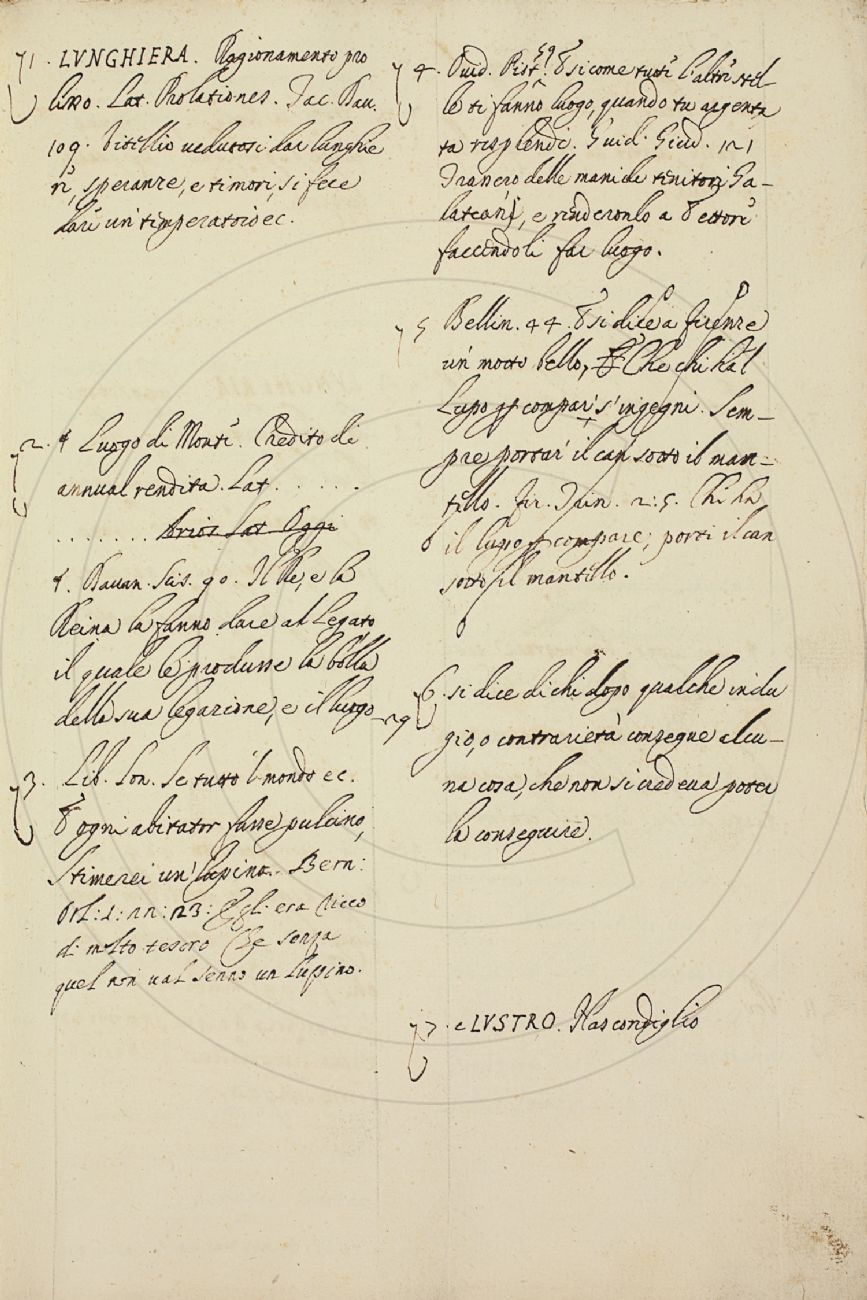 71. LVNGHIERA. Ragionamento pro
lisso. Lat. Prolationes. Tac. Dav.
109. Vitellio vedutosi dar lunghie
ri, speranze, e timori, si fece
dare un' temperatoio ec.
72. § Luogo di Monti. Credito di
annual rendita. Lat. . . . . .
. . . . . . . Arios Sat Oggi
§. Davan. Scis. 90. Il Re, e la
Reina la fanno dare al Legato
il quale le produsse la bolla
della sua legazione, e il luogo
73. Lib. Son. Se tutto 'l mondo ec.
E ogni abitator fusse pulcino,
Stimerei un' lupino. Bern:
Orl: 1: 22: 23: Egli era ricco
di molto tesoro Che senza
quel non val senno un luppino.
74. Ovid. Pist. 59 E sì come tutti l'altri stel-
le ti fanno luogo, quando tu argenta
ta risplendi. Guid. Giud. 121
Trancro delle mani de tenitori Ga-
lateani, e renderonlo a Ettore
faccendoli far luogo.
75 Bellin. 44. E si dice a Firenze
un motto bello, Che chi ha'l
Lupo per compar' s' ingegni. Sem-
pre portar' il can sotto il man=
tello. Fir. Trin. 2: 5. Chi ha
il lupo per compare, porti il can
sotto il mantello.
76. si dice di chi dopo qualche indu
gio, o contrarietà consegue alcu-
na cosa, che non si credeva poter
la conseguire.
77. e LVSTRO. Nascondiglio